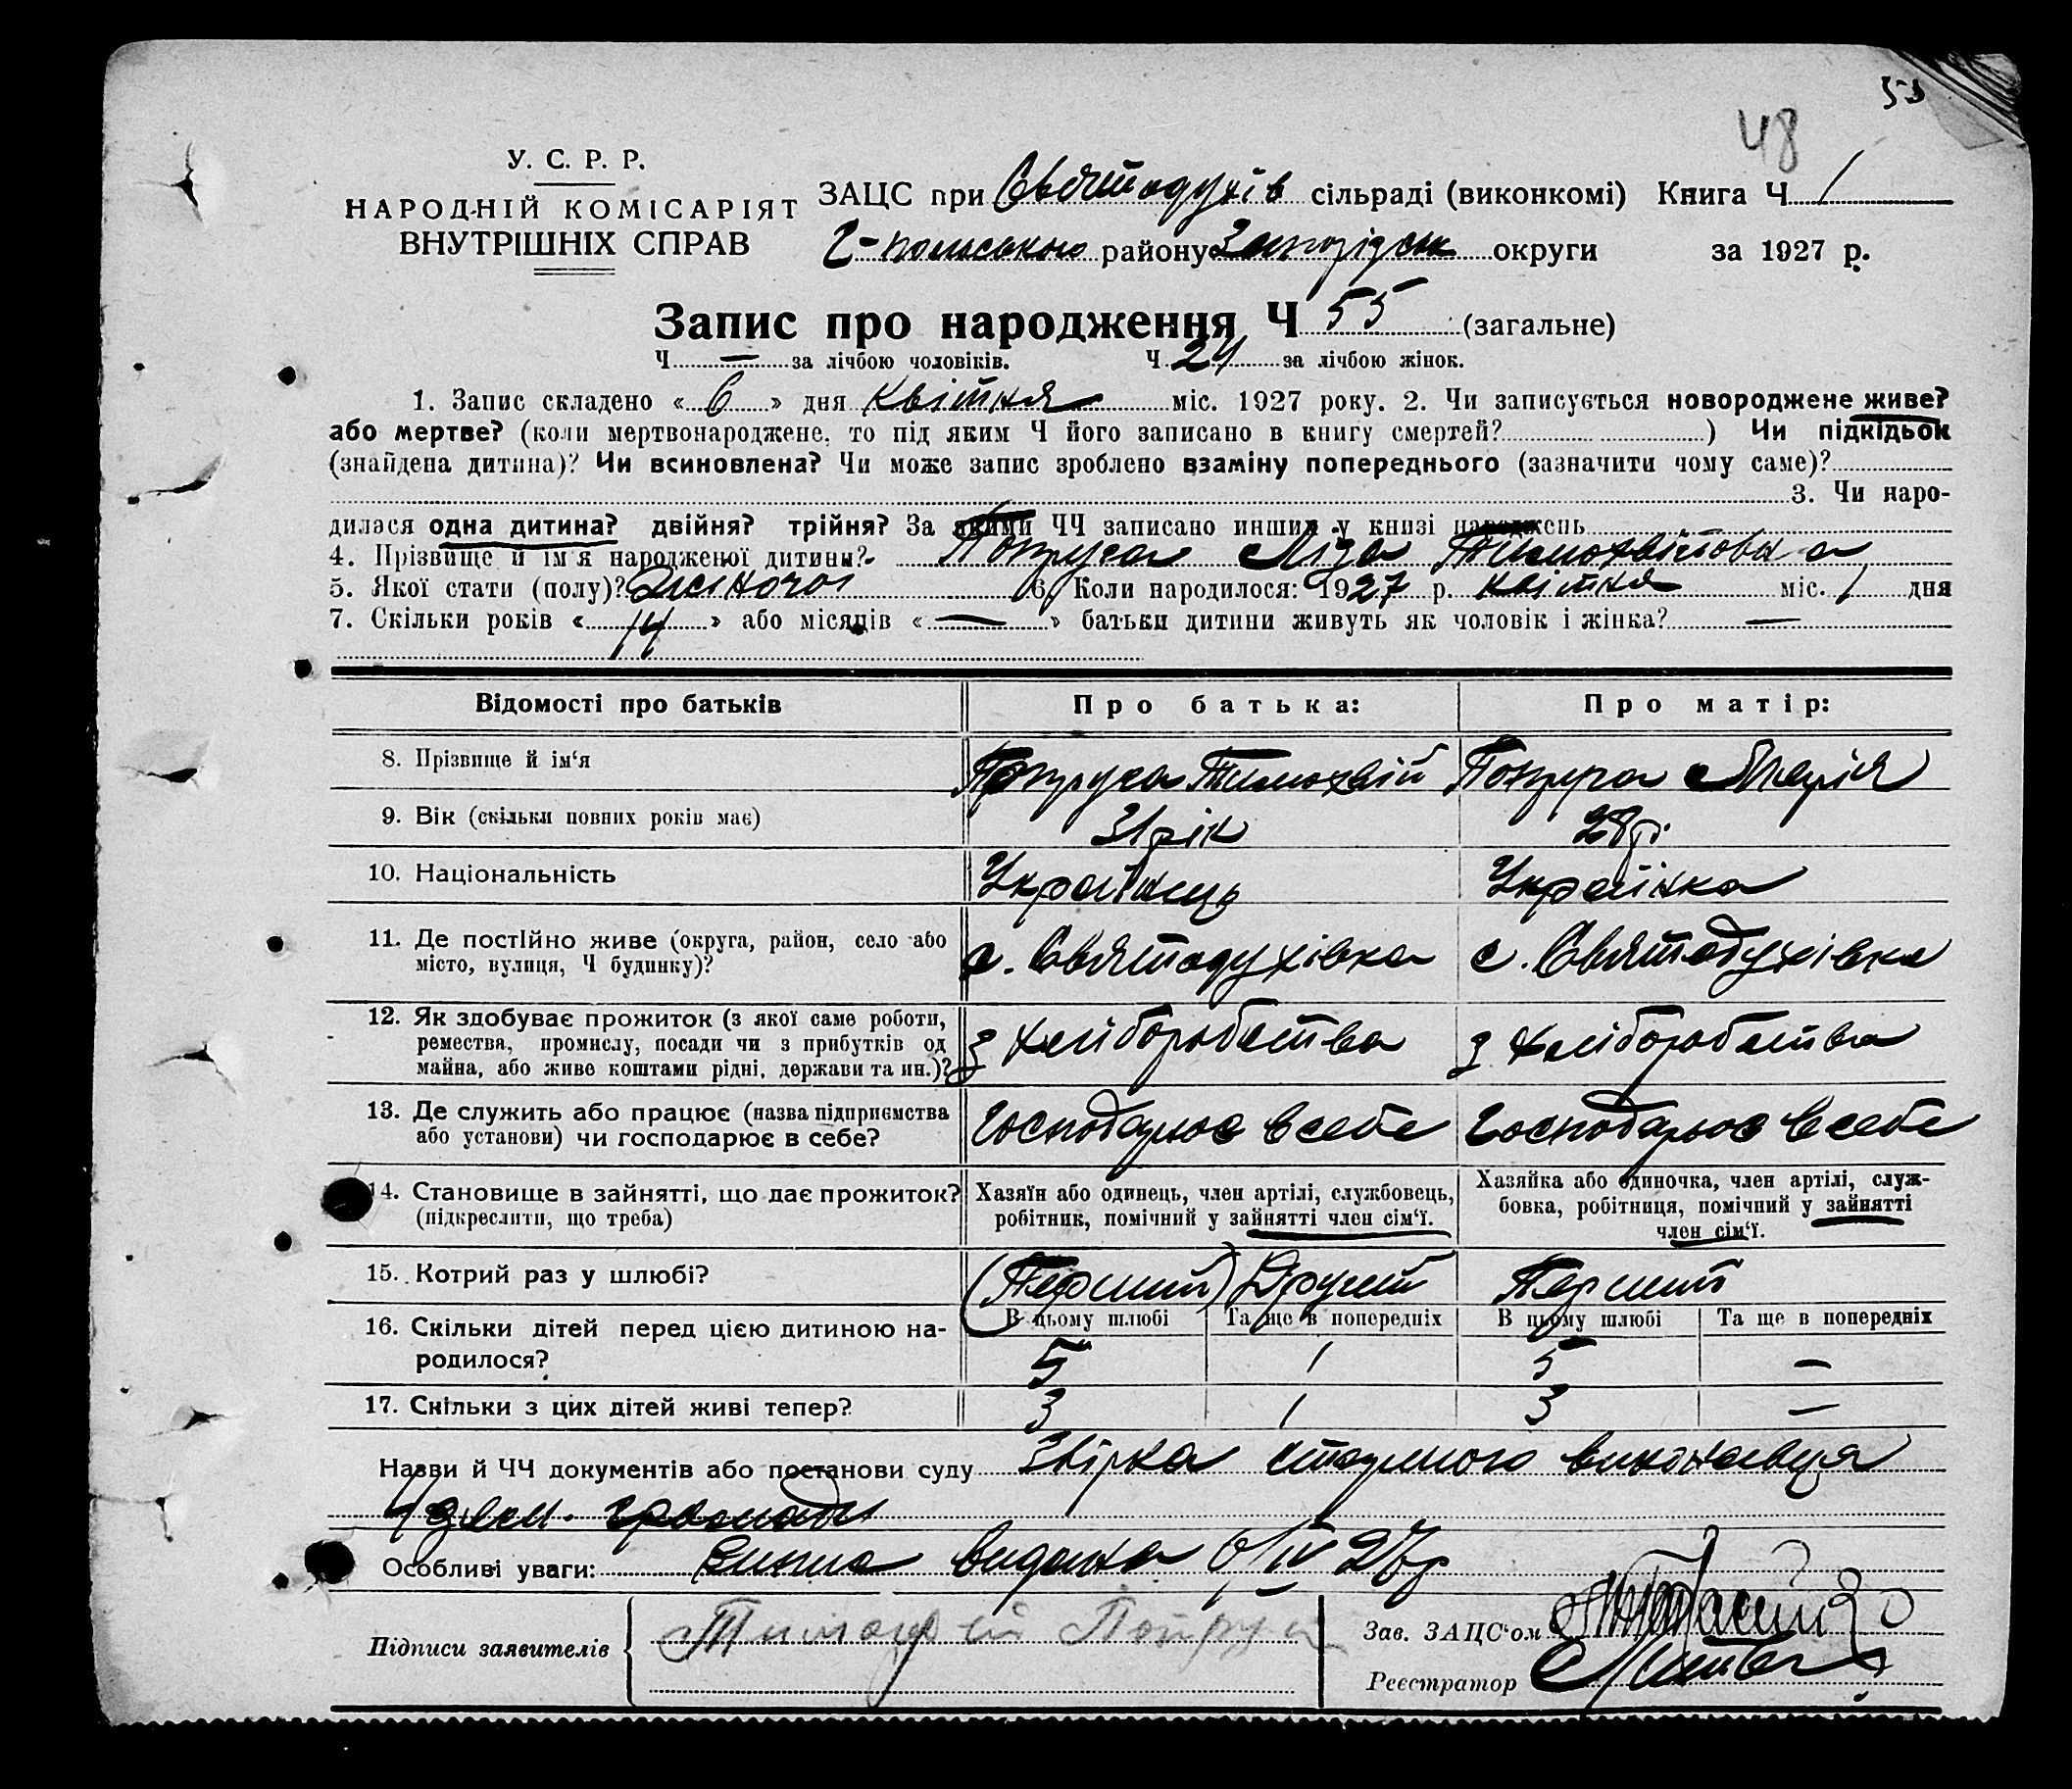 53
48
У. С. Р. Р.
НАРОДНІЙ КОМІСАРІЯТ
ВНУТРІШНІХ СПРАВ
ЗАЦС при Святодухів сільраді (виконкомі) Книга Ч 1
району Запорізьк округи за 1927 р.
Запис про народження Ч 55 (загальне)
Ч — за лічбою чоловіків. Ч 24 за лічбою жінок.
1. Запис складено « 6 » дня квітня міс. 1927 року. 2. Чи записується новороджене живе?
або мертве? (коли мертвонароджене, то під яким Ч його записано в книгу смертей? ) Чи підкідьок
(знайдена дитина)? Чи всиновлена? Чи може запис зроблено взаміну попереднього (зазначити чому саме)?
3. Чи наро-
дилася одна дитина? двійня? трійня? За якими ЧЧ записано инших у книзі народжень
4. Прізвище й ім'я народженої дитини? Попруга Ліза Тимохвійовна
5. Якої стати (полу)? Жіночої 6. Коли народилося: 1927 р. квітня міс. 1 дня
7. Скільки років « 14 » або місяців « — » батьки дитини живуть як чоловік і жінка? —
Відомості про батьків Про батька: Про матір:
8. Прізвище й ім'я Попруга Тимохвій Попруга Марія
9. Вік (скільки повних років має) 31 рік 28 р.
10. Національність Українець Українка
11. Де постійно живе (округа, район, село або
місто, вулиця, Ч будинку)? с. Святодухівка с. Святодухівка
12. Як здобуває прожиток (з якої саме роботи,
ремества, промислу, посади чи з прибутків од
майна, або живе коштами рідні, держави та ин.)? З хліборобства З хліборобства
13. Де служить або працює (назва підприємства
або установи) чи господарює в себе? Господарює в себе Господарює в себе
14. Становище в зайнятті, що дає прожиток?
(підкреслити, що треба)
Хазяїн або одинець, член артілі, службовець,
робітник, помічний у зайнятті член сім'ї.
Хазяйка або одиночка, член артілі, служ-
бовка, робітниця, помічний у зайнятті
член сім'ї.
15. Котрий раз у шлюбі? (Перший) Другий Перший
16. Скільки дітей перед цією дитиною на-
родилося?
В цьому шлюбі Та ще в попередніх В цьому шлюбі Та ще в попередніх
5 1 5 —
17. Скільки з цих дітей живі тепер? 3 1 3 —
Назви й ЧЧ документів або постанови суду Звірка виконавця
громади
Особливі уваги: Випис видана 6/IV 27 р
Підписи заявителів Тимофей Попруга
Зав. ЗАЦС'ом
Реєстратор